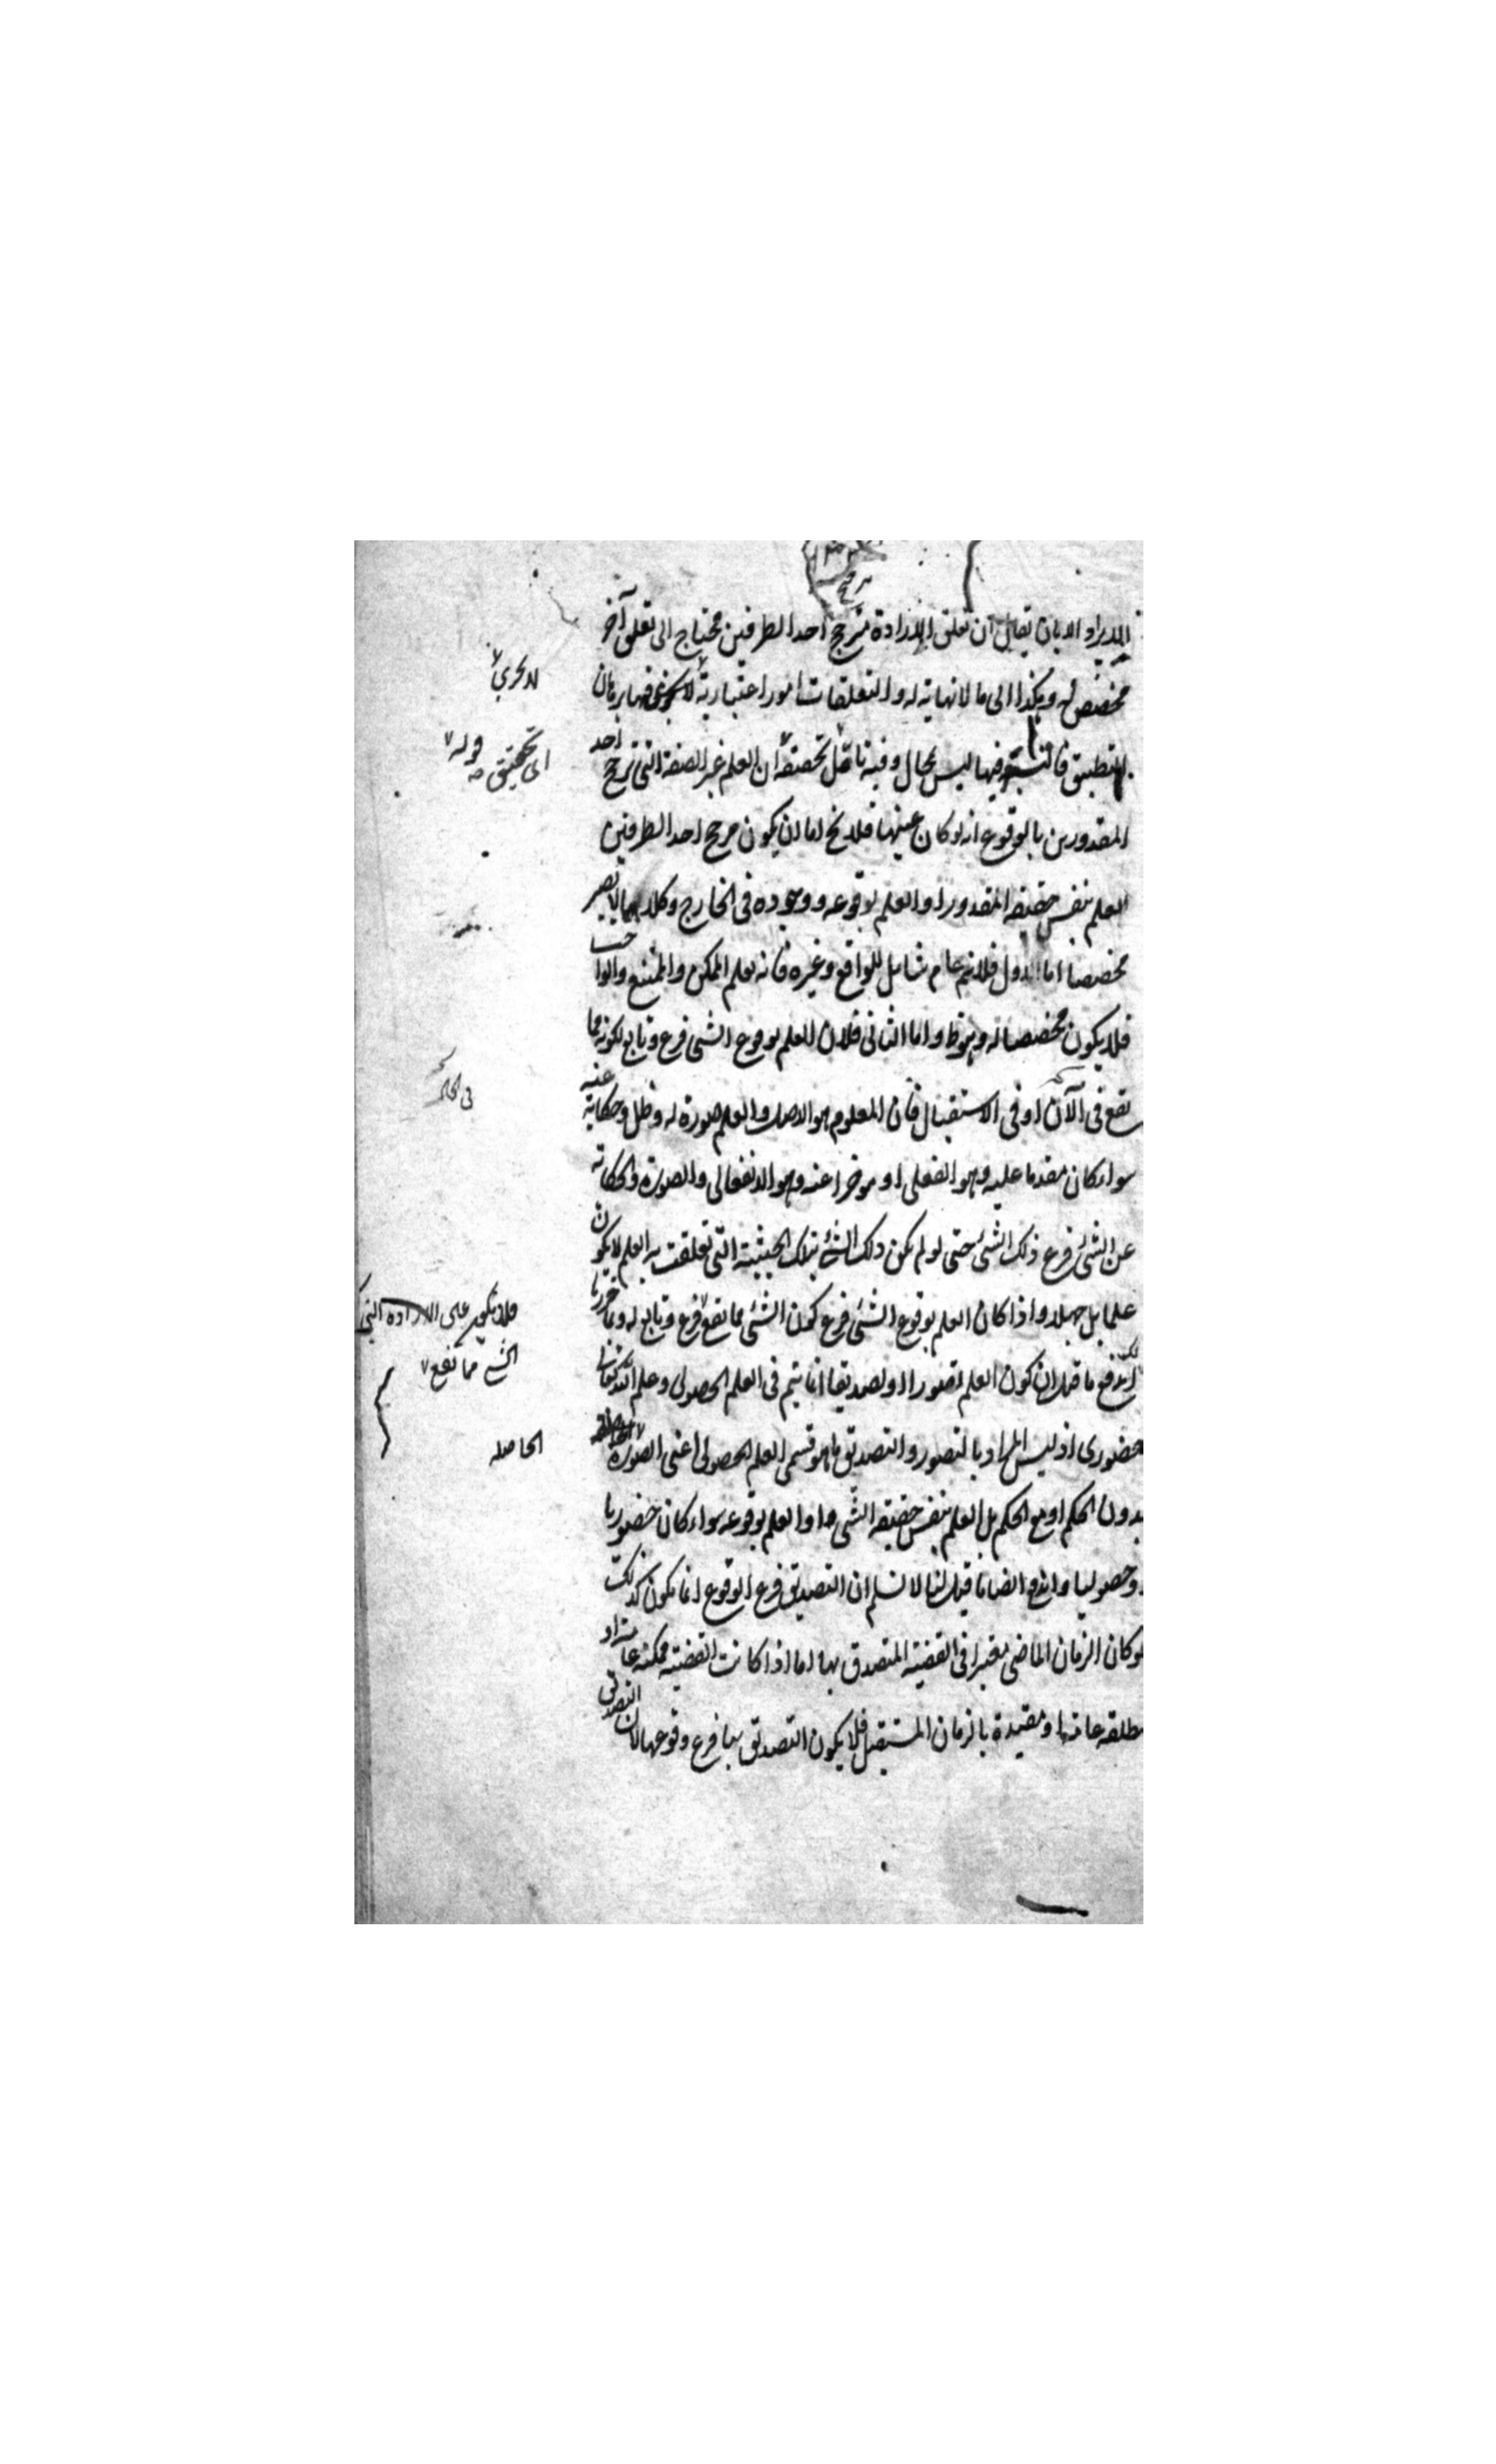 الا بان يقال ان تعلق الارادة بترجيح احد الطرفين محتاج الى تعلق آخر
مخصص له وهكذا الى ما لانهاية له والتعلقات امور اعتبارية لا يجرى فيها برهان
لا يجرى
التطبيق فالتسلسل فيها ليس بمحال وفيه تأمل تحقيقه ان العلم غير الصفة التى ترجح احد
قوله
المقدورين بالوقوع انه لو كان عينها فلا يخ اما ان يكون مرجح احد الطرفين
العلم بنفس حقيقة المقدور او العلم بوقوعه ووجوده فى الخارج وكلاهما لا يصير
مخصصا اما الاول فلانه عام شامل للواقع وغيره فانه يعلم الممكن والممتنع والواجب
فلا يكون مخصصا له وهو ظ واما الثانى فلان العلم بوقوع الشئ فرع وتابع لكونه مما
يقع فى الآن او فى الاستقبال فان المعلوم هو الاصل والعلم صورة له وظل وحكاية عنه
سواء كان مقدما عليه وهو الفعلى او موخرا عنه وهو الانفعالى والصورة والحكاية
عن الشئ فرع ذلك الشئ حتى لو لم يكن ذلك الشئ بتلك الحيثية التى تعلقت به العلم لا يكون
علما بل جهلا واذا كان العلم بوقوع الشئ فرع كون الشئ مما يقع فرع وتابع له وبما حررنا
الشئ مما يقع
اندفع ما قيل ان كون العلم تصورا او تصديقا انما يتم فى العلم الحصولى وعلم
حضورى اذ ليس المراد بالتصور والتصديق ما هو قسمى العلم الحصولى اعنى الصورة
الحاصلة
بدون الحكم او مع الحكم بل العلم بنفس حقيقة الشئ او العلم بوقوعه سواء كان حضوريا
او حصوليا واندفع ايضا ما قيل لانسلم ان التصديق فرع الوقوع انما يكون كذلك
لو كان الزمان الماضى معتبرا فى القضية المتصدق بها اما اذا كانت القضية ممكنة عامة او
مطلقة عامة او مقيدة بالزمان المستقبل فلا يكون التصديق بها فرع وقوعها لان التصديق